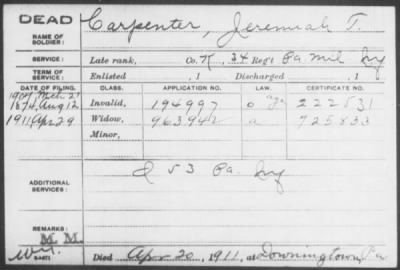 DEAD
Carpenter, Jeremiah T.
NAME OF SOLDIER:
SERVICE: Late rank, Co. K, 34 Reg't Pa Mil Inf
TERM OF SERVICE: Enlisted , 1 Discharged , 1
DATE OF FILING. CLASS. APPLICATION NO. LAW. CERTIFICATE NO.
1874, Aug 12 Invalid, 194997 222531
1911 Apr 29 Widow, 963942 a 725833
Minor,
ADDITIONAL SERVICES:
D 53 Pa. Inf
REMARKS:
M. M.
Died Apr 20, 1911, at Downingtown, Pa